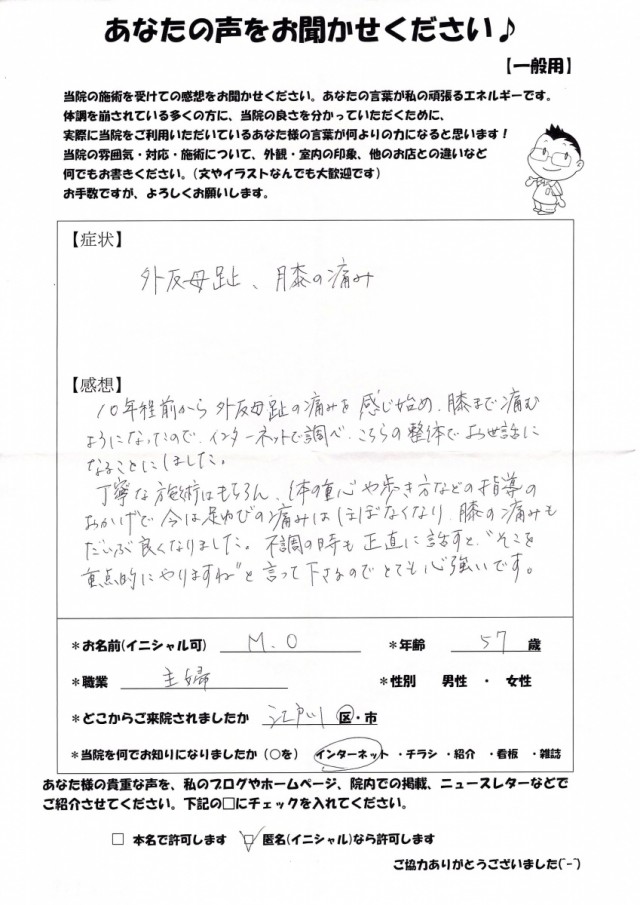 あなたの声をお聞かせください♪
【一般用】
当院の施術を受けての感想をお聞かせください。あなたの言葉が私の頑張るエネルギーです。
体調を崩されている多くの方に、当院の良さを分かっていただくために、
実際に当院をご利用いただいているあなた様の言葉が何よりの力になると思います！
当院の雰囲気・対応・施術について、外観・室内の印象、他のお店との違いなど
何でもお書きください。（文やイラストなんでも大歓迎です）
お手数ですが、よろしくお願いします。
【症状】
外反母趾、膝の痛み
【感想】
10年程前から外反母趾の痛みを感じ始め、膝まで痛む
ようになったので、インターネットで調べ、こちらの整体でお世話に
なることにしました。
丁寧な施術はもちろん、体の重心や歩き方などの指導の
おかげで今は足ゆびの痛みはほぼなくなり、膝の痛みも
だいぶ良くなりました。不調の時も正直に話すと、“そこを
重点的にやりますね”と言って下さるのでとても心強いです。
＊お名前(イニシャル可) M.O ＊年齢 57 歳
＊職業 主婦 ＊性別 男性 ・ 女性
＊どこからご来院されましたか 江戸川 区・市
＊当院を何でお知りになりましたか（○を） インターネット ・チラシ ・紹介 ・看板 ・雑誌
あなた様の貴重な声を、私のブログやホームページ、院内での掲載、ニュースレターなどで
ご紹介させてください。下記の□にチェックを入れてください。
□ 本名で許可します ☑ 匿名(イニシャル)なら許可します
ご協力ありがとうございました(^-^)